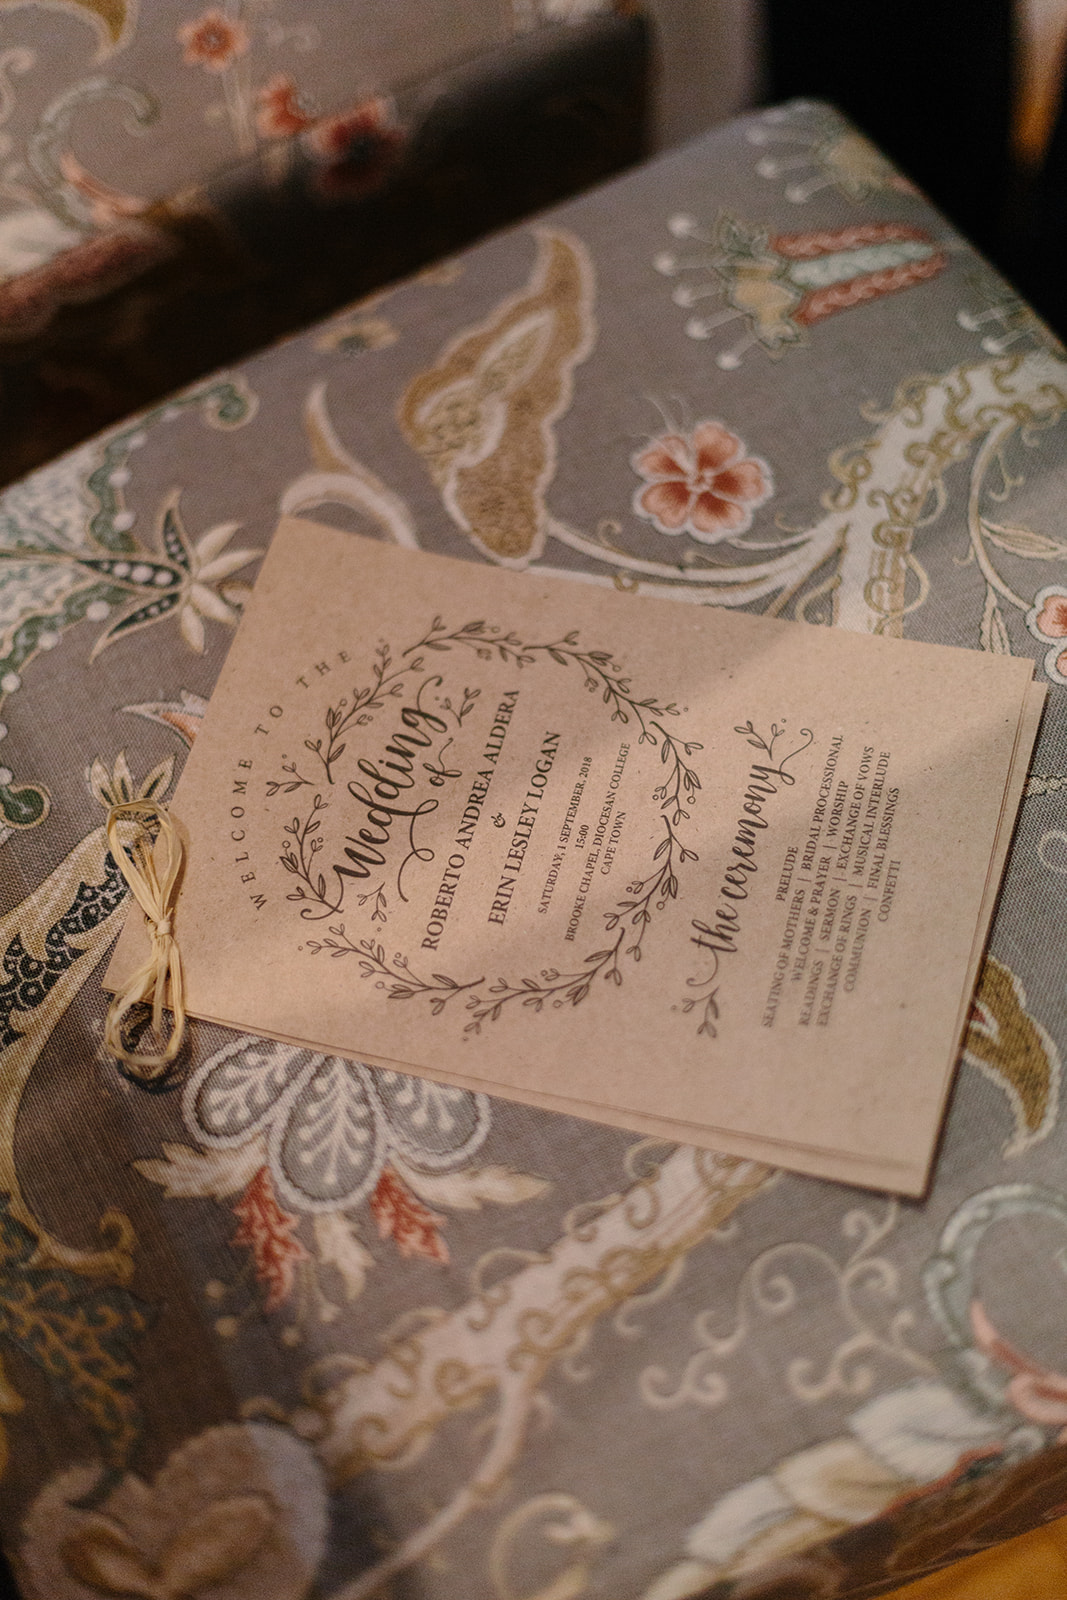 WELCOME TO THE
wedding
of
ROBERTO ANDREA ALDERA
&
ERIN LESLEY LOGAN
SATURDAY, 1 SEPTEMBER, 2018
15:00
BROOKE CHAPEL, DIOCESAN COLLEGE
CAPE TOWN
the ceremony
PRELUDE
SEATING OF MOTHERS | BRIDAL PROCESSIONAL
WELCOME & PRAYER | WORSHIP
READINGS | SERMON | EXCHANGE OF VOWS
EXCHANGE OF RINGS | MUSICAL INTERLUDE
COMMUNION | FINAL BLESSINGS
CONFETTI